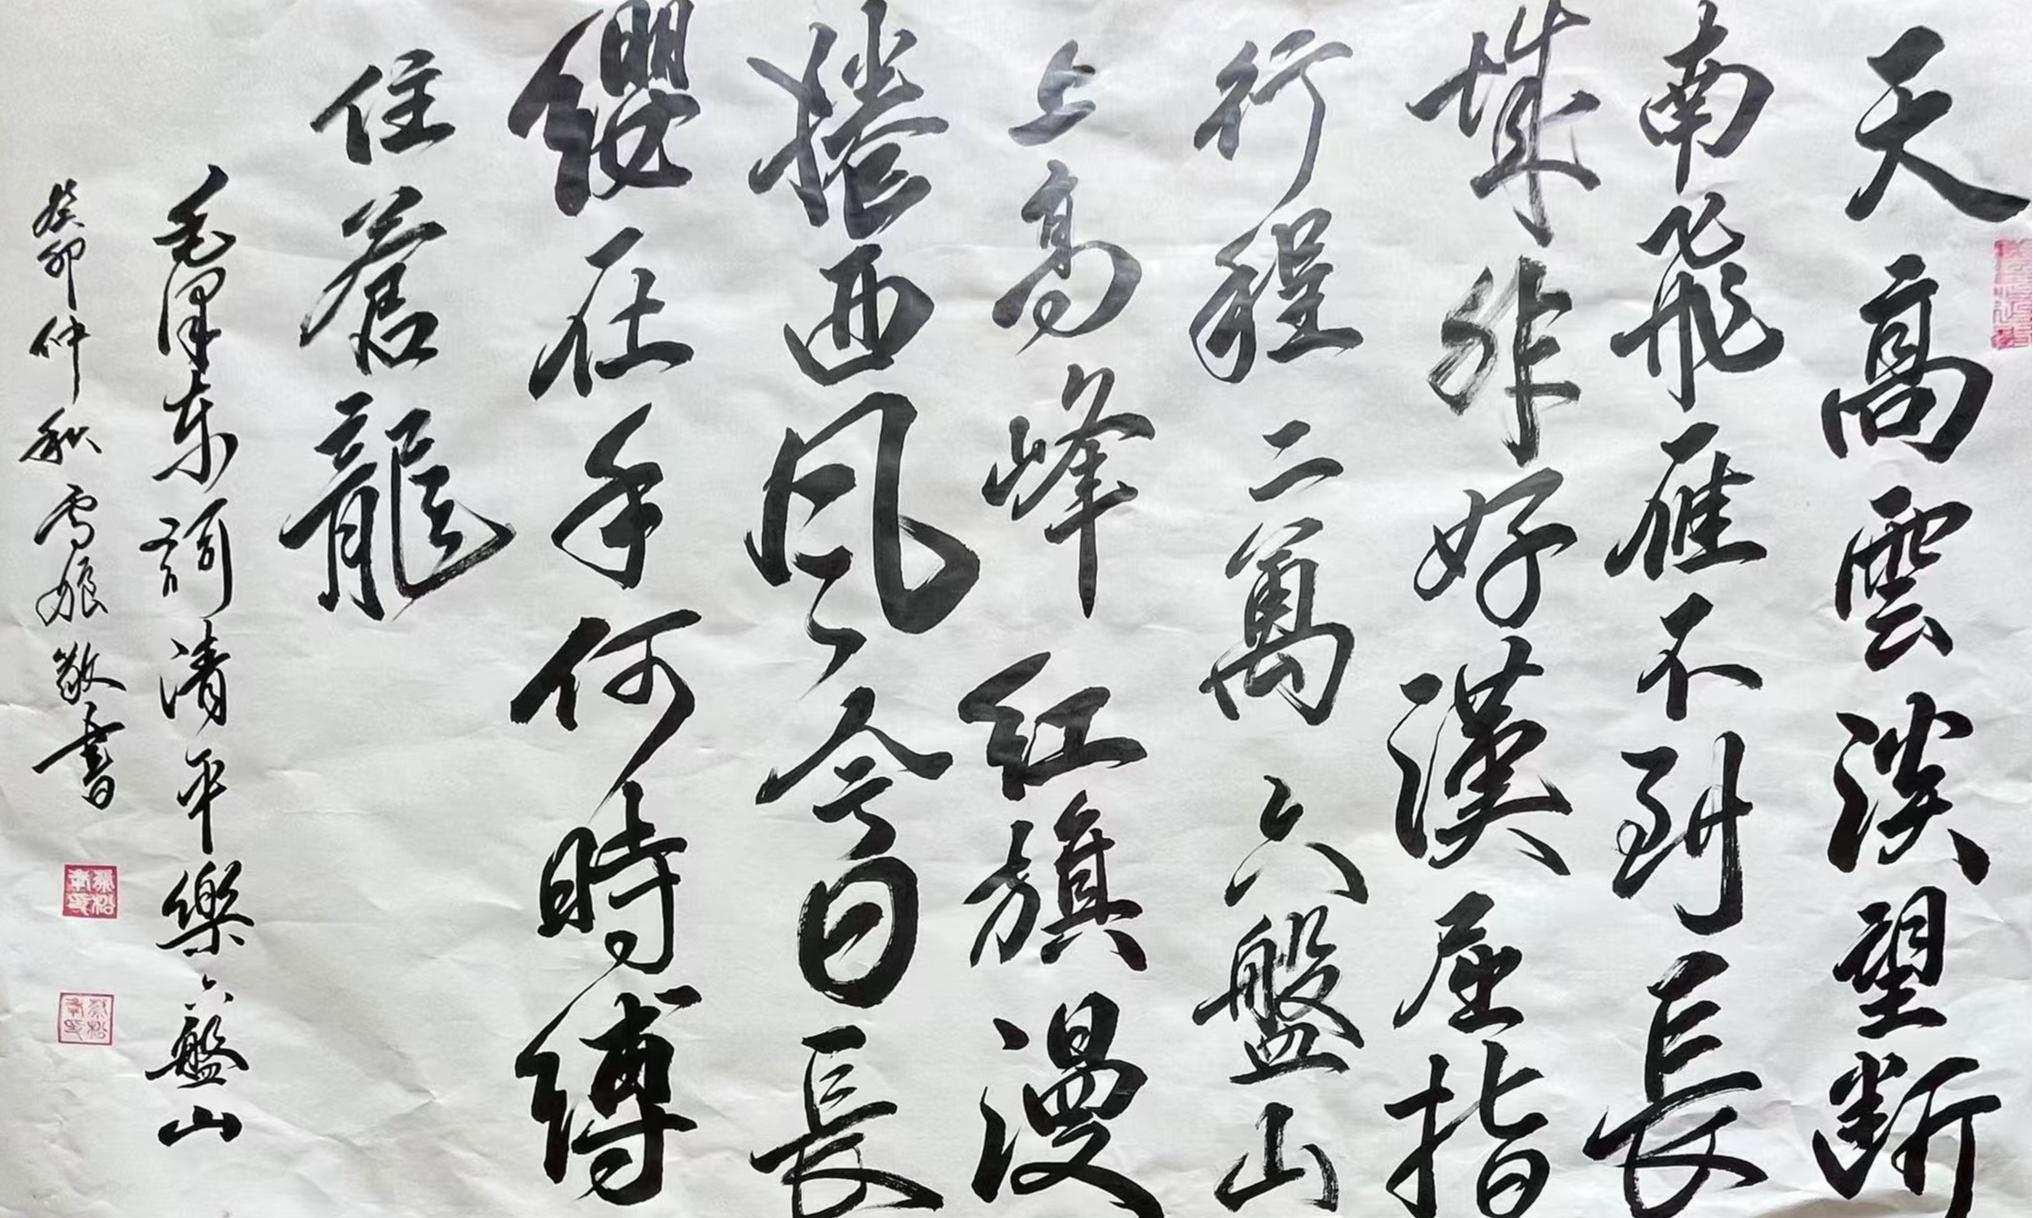 天高雲淡望断
南飛雁不到長
城非好漢屈指
行程二萬六盤山
上高峰紅旗漫
捲西風今日長
纓在手何時縛
住蒼龍
毛澤东词清平樂六盤山
癸卯仲秋 敬書